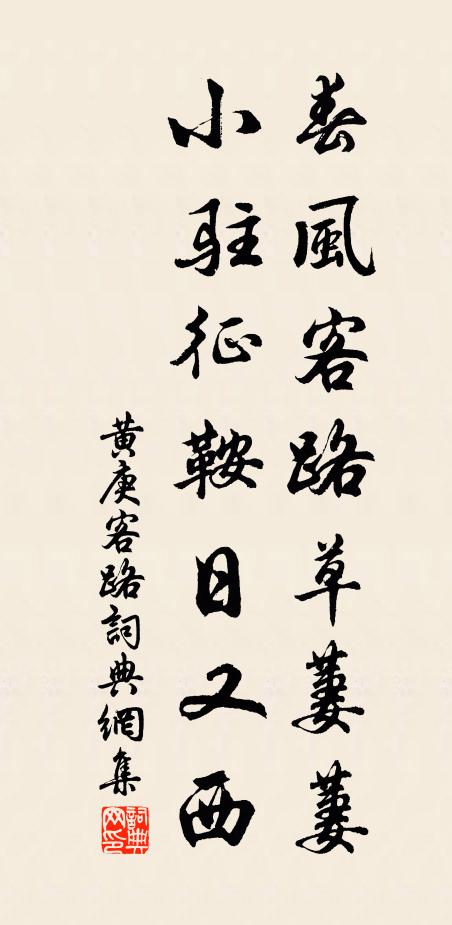 春風客路草萋萋
小駐征鞍日又西
黄庚客路詞典網集
詞典
网印